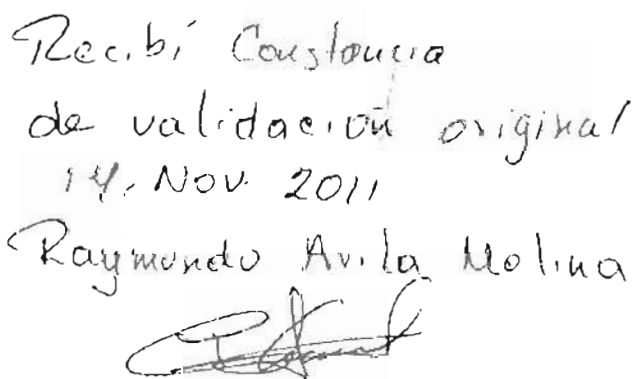 Recibí Constancia
de validación original
14. Nov. 2011
Raymundo Avila Molina